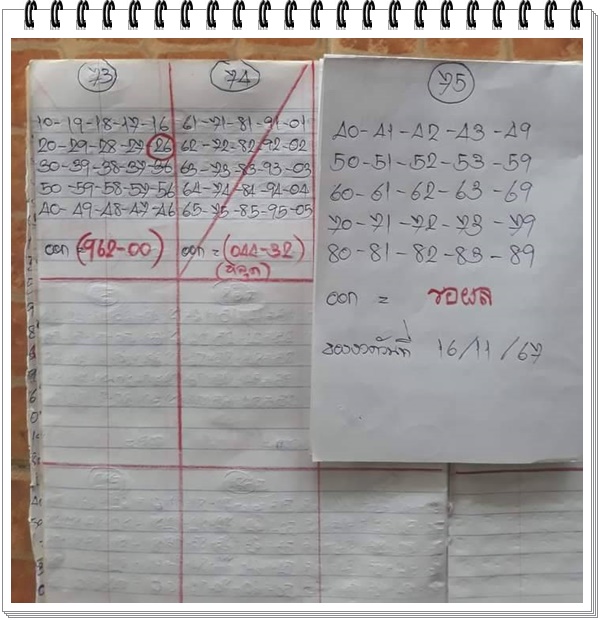 73
10-19-18-17-16
20-29-28-27-26
30-39-38-37-36
50-59-58-57-56
40-49-48-47-46
ออก = (962-00)
74
61-71-81-91-01
62-72-82-92-02
63-73-83-93-03
64-74-84-94-04
65-75-85-95-05
ออก = (044-32)
75
40-41-42-43-49
50-51-52-53-59
60-61-62-63-69
70-71-72-73-79
80-81-82-83-89
ออก = รอผล
ของงวดวันที่ 16/11/67